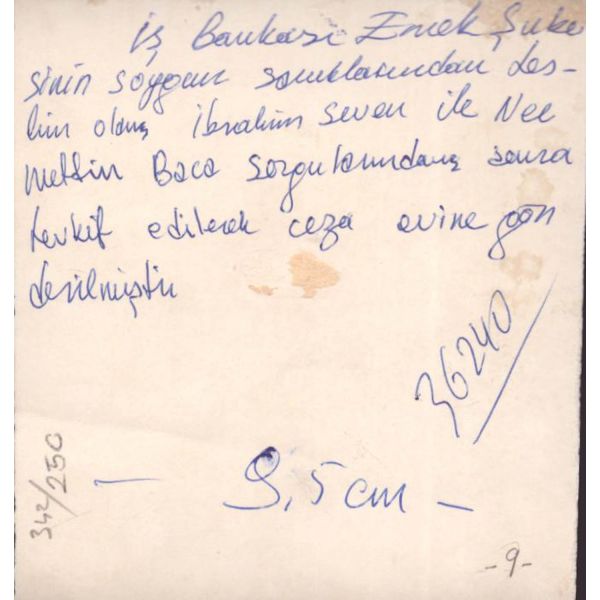 İş Bankası Emek Şube
sinin soygun sanıklarından tes-
lim olan İbrahim Seven ile Nec
mettin Baca sorgularından sonra
tevkif edilerek ceza evine gön
derilmiştir
36240
342/250
— 9,5 cm —
-9-